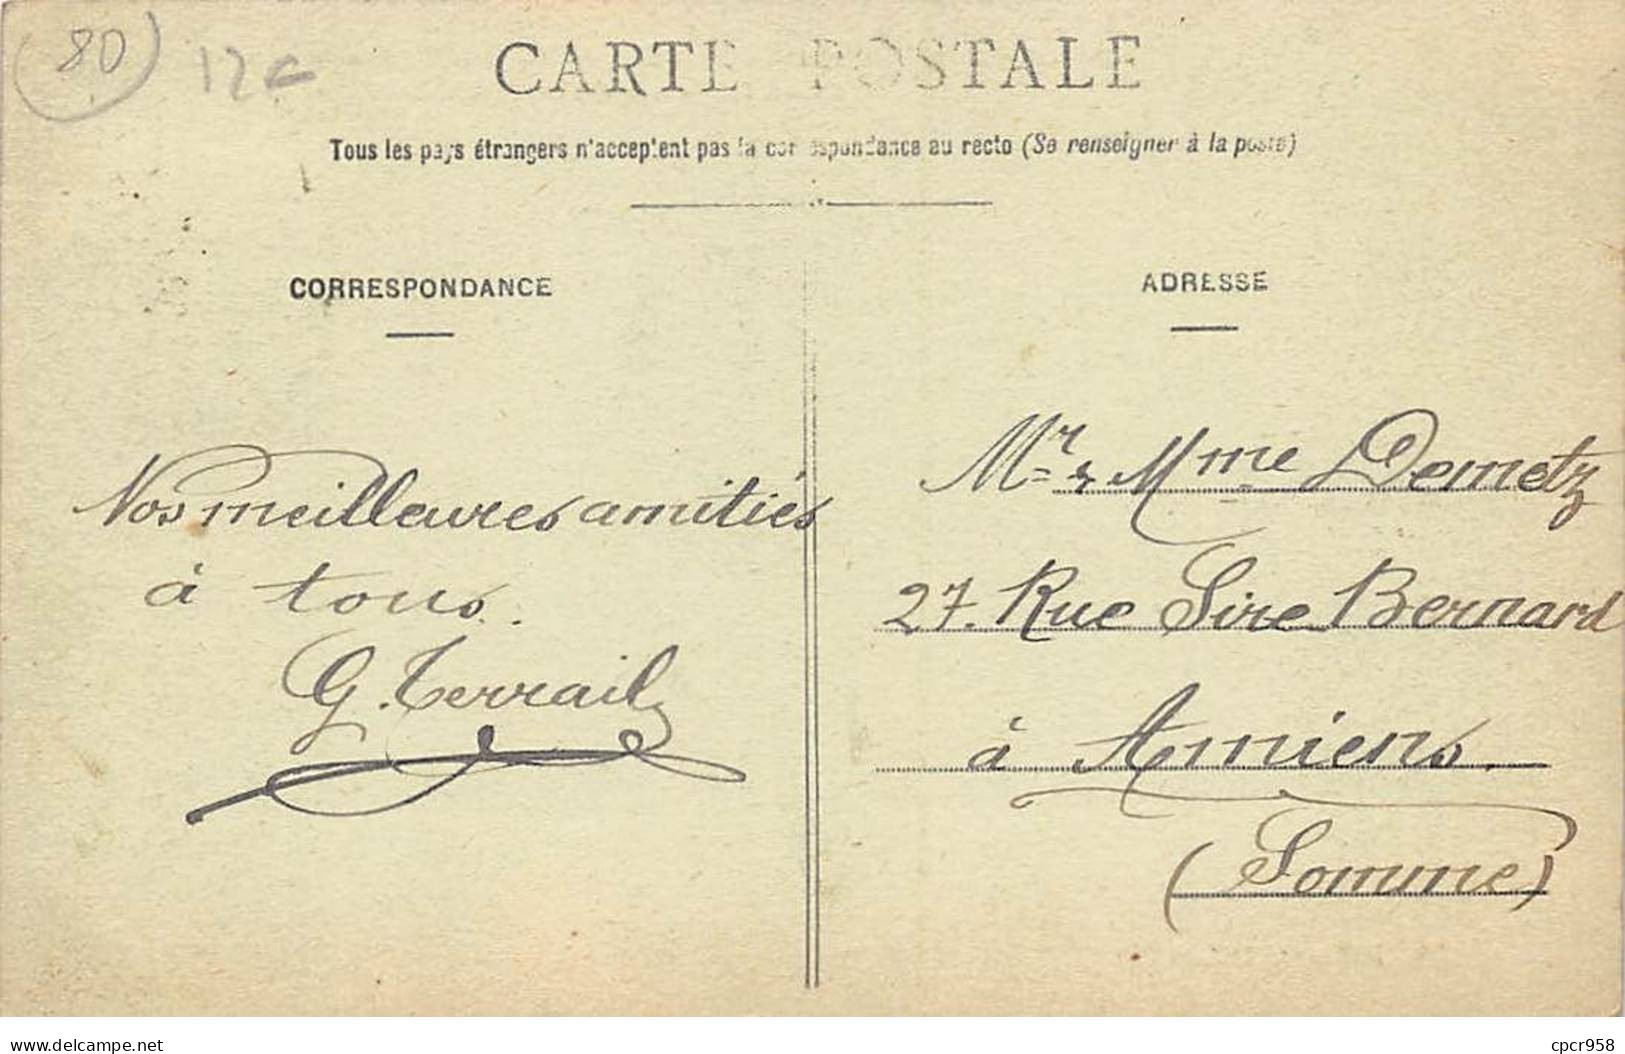 80
12€
CARTE POSTALE
Tous les pays étrangers n'acceptent pas la correspondance au recto (Se renseigner à la poste)
CORRESPONDANCE
ADRESSE
Nos meilleures amitiés
à tous.
G. Terrail
Mr & Mme Demetz
27. Rue Sire Bernard
à Amiens.
(Somme)
www.delcampe.net
cpcr958